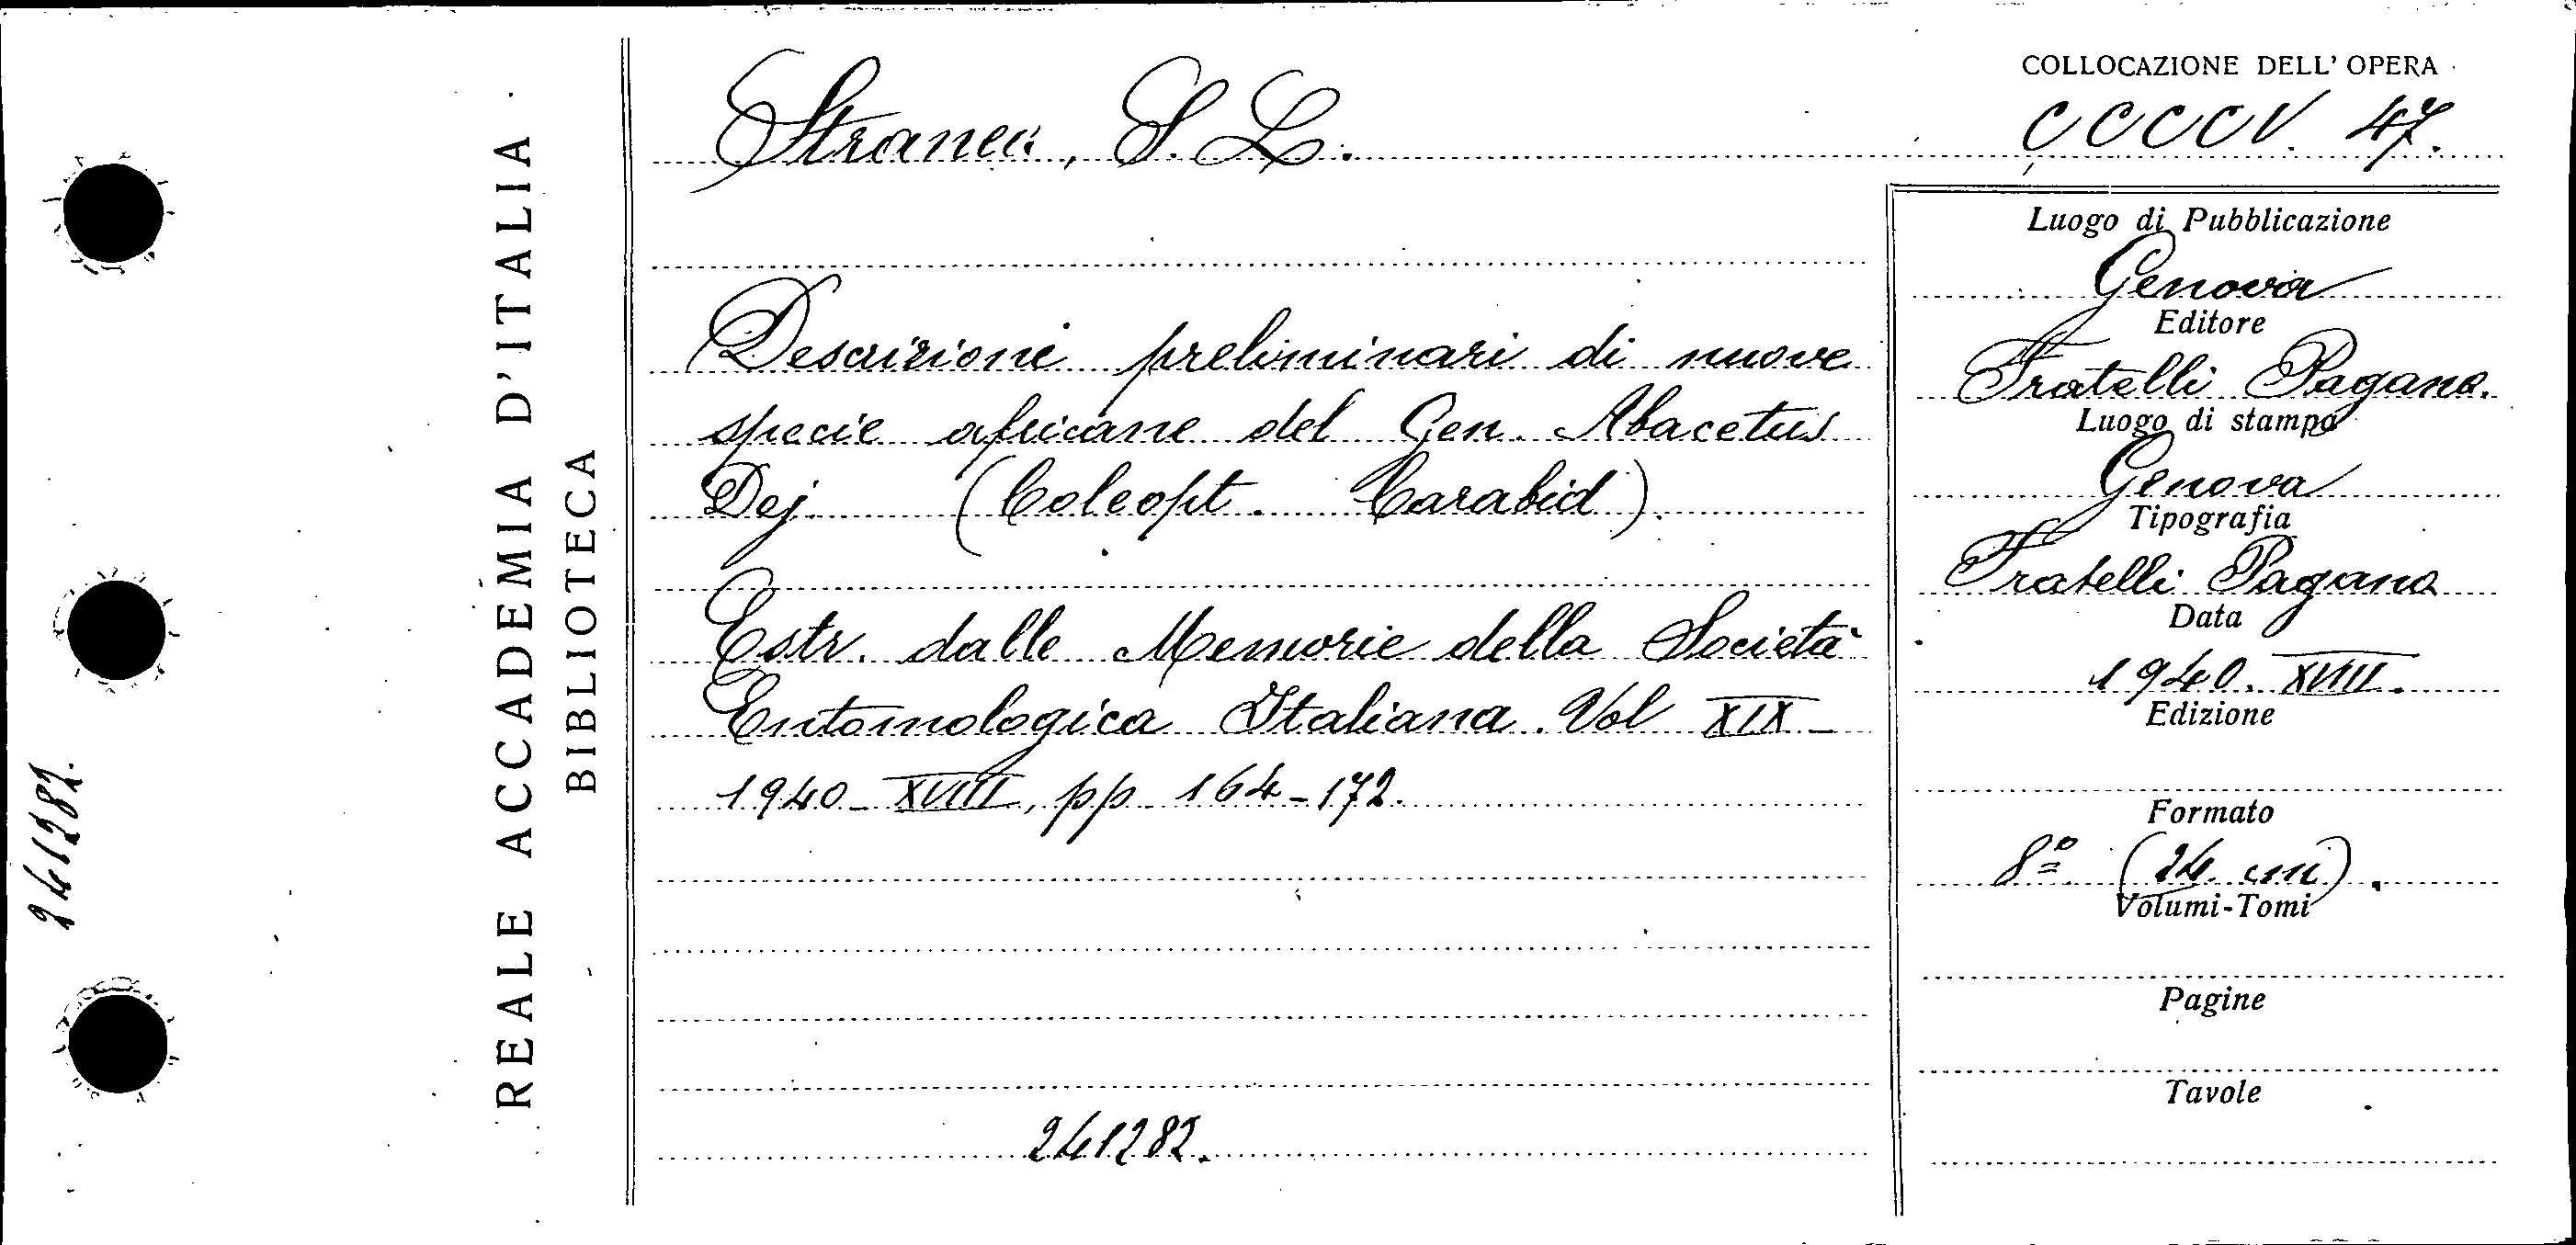 COLLOCAZIONE DELL' OPERA
Straneo, S. L.
CCCCV. 47.
Descrizioni preliminari di nuove
specie africane del Gen. Abacetus
Dej. (Coleopt. Carabid).
Estr. dalle Memorie della Società
Entomologica Italiana. Vol XIX -
1940 - XVIII, pp. 164-172.
241282.
Luogo di Pubblicazione
Genova
Editore
Fratelli Pagano.
Luogo di stampa
Genova
Tipografia
Fratelli Pagano
Data
1940. XVIII.
Edizione
Formato
8º (24 cm).
Volumi-Tomi
Pagine
Tavole
REALE ACCADEMIA D'ITALIA
BIBLIOTECA
241282.